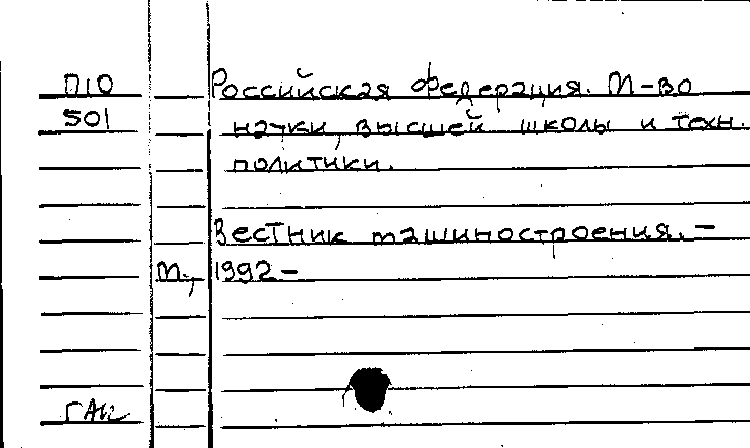 П10 Российская Федерация. М-во
501 науки, высшей школы и техн.
политики.
Вестник машиностроения. –
М., 1992 –